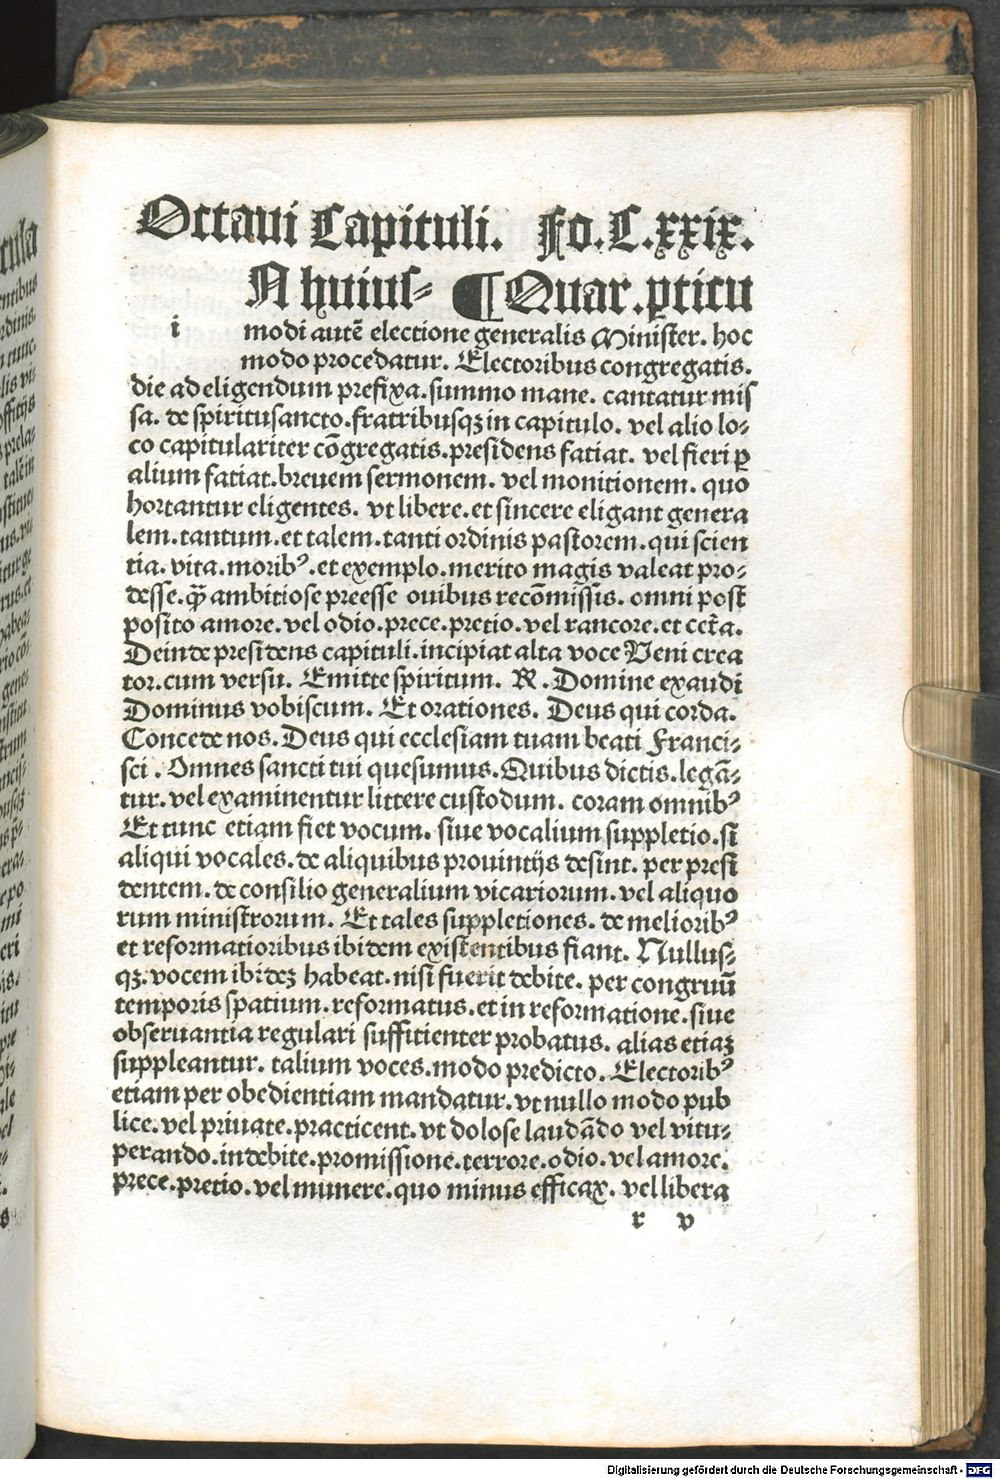 Octaui Capituli. Fo.C.xxix.
N huius⸗ ¶Quar.ꝑticu
i modi autē electione generalis Minister. hoc
modo procedatur. Electoribus congregatis.
die ad eligendum prefixa.summo mane. cantatur mis
sa. de spiritusancto.fratribusqꝫ in capitulo. vel alio lo⸗
co capitulariter cōgregatis.presidens fatiat. vel fieri ꝑ
alium fatiat.breuem sermonem. vel monitionem. quo
hortantur eligentes. vt libere.et sincere eligant genera
lem.tantum.et talem.tanti ordinis pastorem.qui scien
tia. vita.moribꝰ.et exemplo.merito magis valeat pro⸗
desse.qꝫ̄ ambitiose preesse ouibus recōmissis. omni post
posito amore.vel odio.prece.pretio.vel rancore.et cet̄a.
Deinde presidens capituli.incipiat alta voce Veni crea
tor.cum versu. Emitte spiritum. R. Domine exaudi
Dominus vobiscum. Et orationes. Deus qui corda.
Concede nos.Deus qui ecclesiam tuam beati Franci⸗
sci. Omnes sancti tui quesumus.Quibus dictis.legā⸗
tur.vel examinentur littere custodum. coram omnibꝰ
Et tunc etiam fiet vocum. siue vocalium suppletio.si
aliqui vocales.de aliquibus prouintijs desint. per presi
dentem.de consilio generalium vicariorum.vel aliquo
rum ministrorum. Et tales suppletiones. de melioribꝰ
et reformatioribus ibidem existentibus fiant. Nullus⸗
qꝫ.vocem ibidēꝫ habeat.nisi fuerit debite. per congruū
temporis spatium.reformatus.et in reformatione.siue
obseruantia regulari suffitienter probatus. alias etiaꝫ
suppleantur. talium voces.modo predicto. Electoribꝰ
etiam per obedientiam mandatur.vt nullo modo pub
lice.vel priuate.practicent.vt dolose laudādo vel vitu⸗
perando.indebite.promissione.terrore.odio.vel amore.
prece.pretio.vel munere.quo minus efficax. vel libera
r v
Digitalisierung gefördert durch die Deutsche Forschungsgemeinschaft - DFG